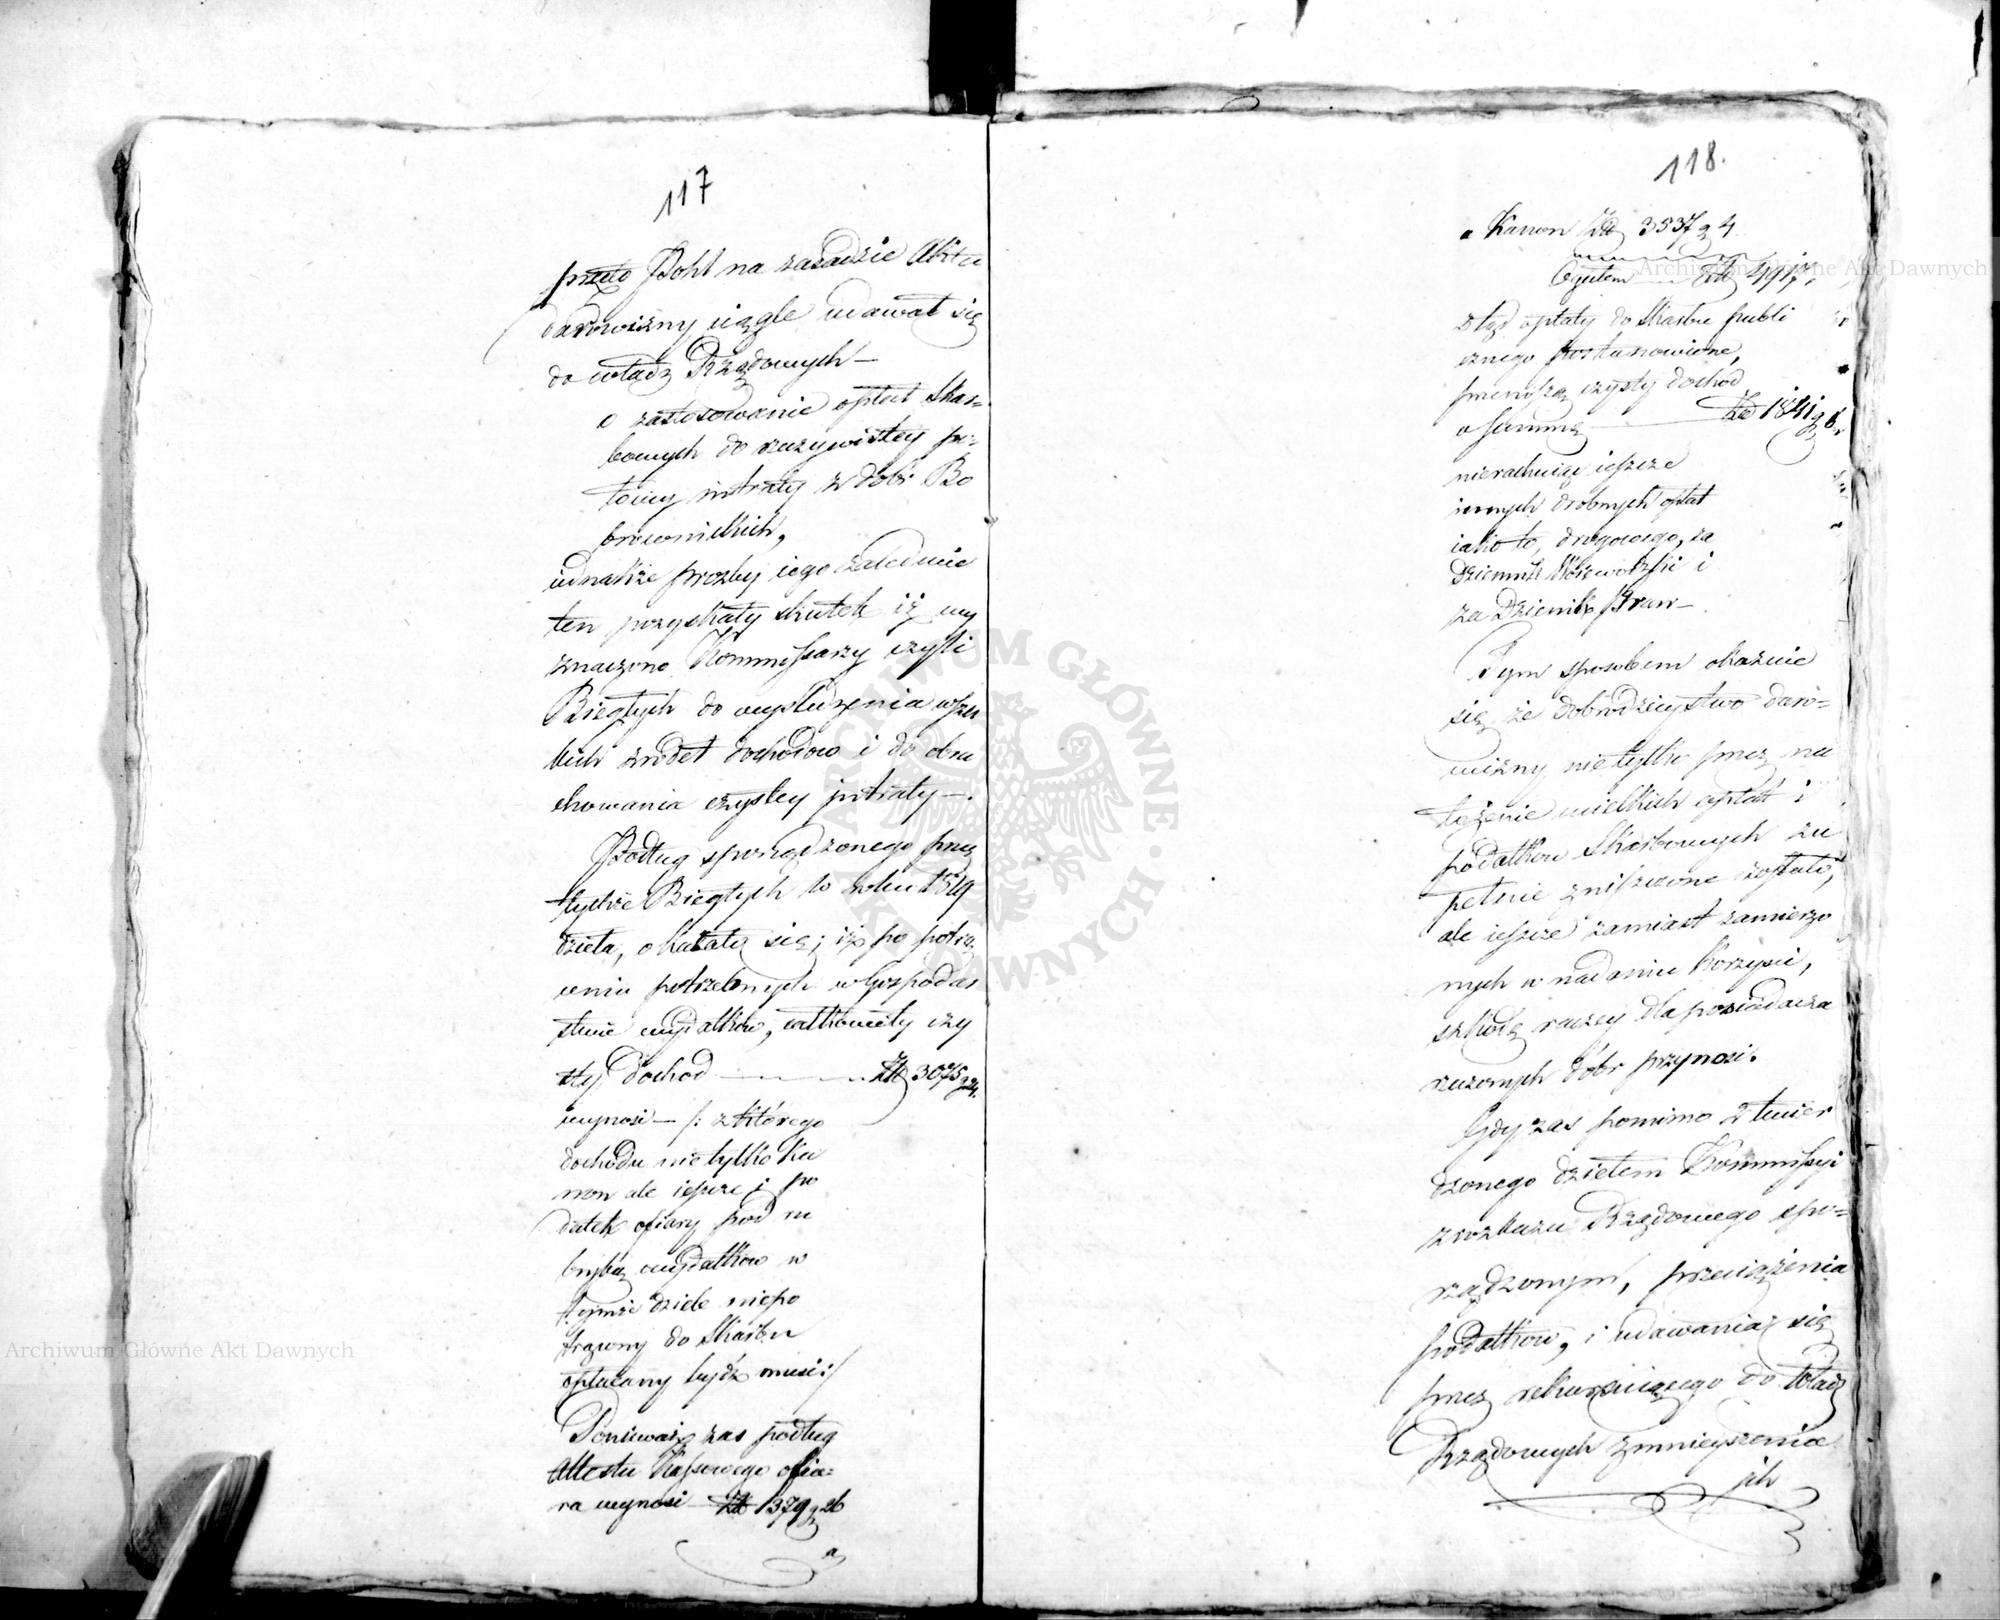 117
przeto Pohl na zasadzie Aktu
darowizny ciągle udawał się
do władz Rządowych —
o zastosowanie opłat Skar=
bowych do rzeczywistey go=
towey intraty z dóbr Bo
brownickich,
iednakże prozby iego zaledwie
ten pozyskały skutek iż wy
znaczono Kommissarzy czyli
Biegłych do wyśledzenia wszel
kich źrodeł dochodow i do obra
chowania czystey intraty —.
Podług sporządzonego przez
tychże Biegłych w roku 1819
dzieła, okazało się; iż po potrą
ceniu potrzebnych w Gospodar
stwie wydatków, całkowity czy
sty Dochod ——— Zł 3075 g 24.
wynosi — /: z którego
dochodu nie tylko Ka
non ale ieszcze i po
datek ofiary pod ru
bryką wydatków w
tymże dziele niepo
trącony do Skarbu
opłacany bydź musi :/
Ponieważ zas podług
Attestu Kassowego ofia=
ra wynosi — Zł 1379 g 26
a
118.
a Kanon Zł 3537 g 4
Ogółem — Zł 4917,
ztąd opłaty do Skarbu publi
cznego postanowione,
przewyższą czysty dochód
o summę ——— Zł 1841 g 6
nierachuiąc ieszcze
innych drobnych opłat
iako to, drogowego, za
Dziennik Woiewodzki i
za Dziennik Praw —
Tym sposobem okazuie
się że dobrodzieystwo daro=
wizny nietylko przez na
łożenie wielkich opłat i
podatkow Skarbowych zu
pełnie zniszczone zostało,
ale ieszcze zamiast zamierzo
nych w nadaniu korzyści,
szkodę raczey dla posiadacza
rzeczonych dóbr przynosi.
Gdy zas pomimo stwier
dzonego dziełem Kommissyi
z rozkazu Rządowego spo=
rządzonym, przeciążenia
podatkow, i udawania się
przez rekuruiącego do Władz
Rządowych zmnieyszenia
ich
Archiwum Główne Akt Dawnych
Archiwum Główne Akt Dawnych
ARCHIWUM GŁÓWNE AKT DAWNYCH